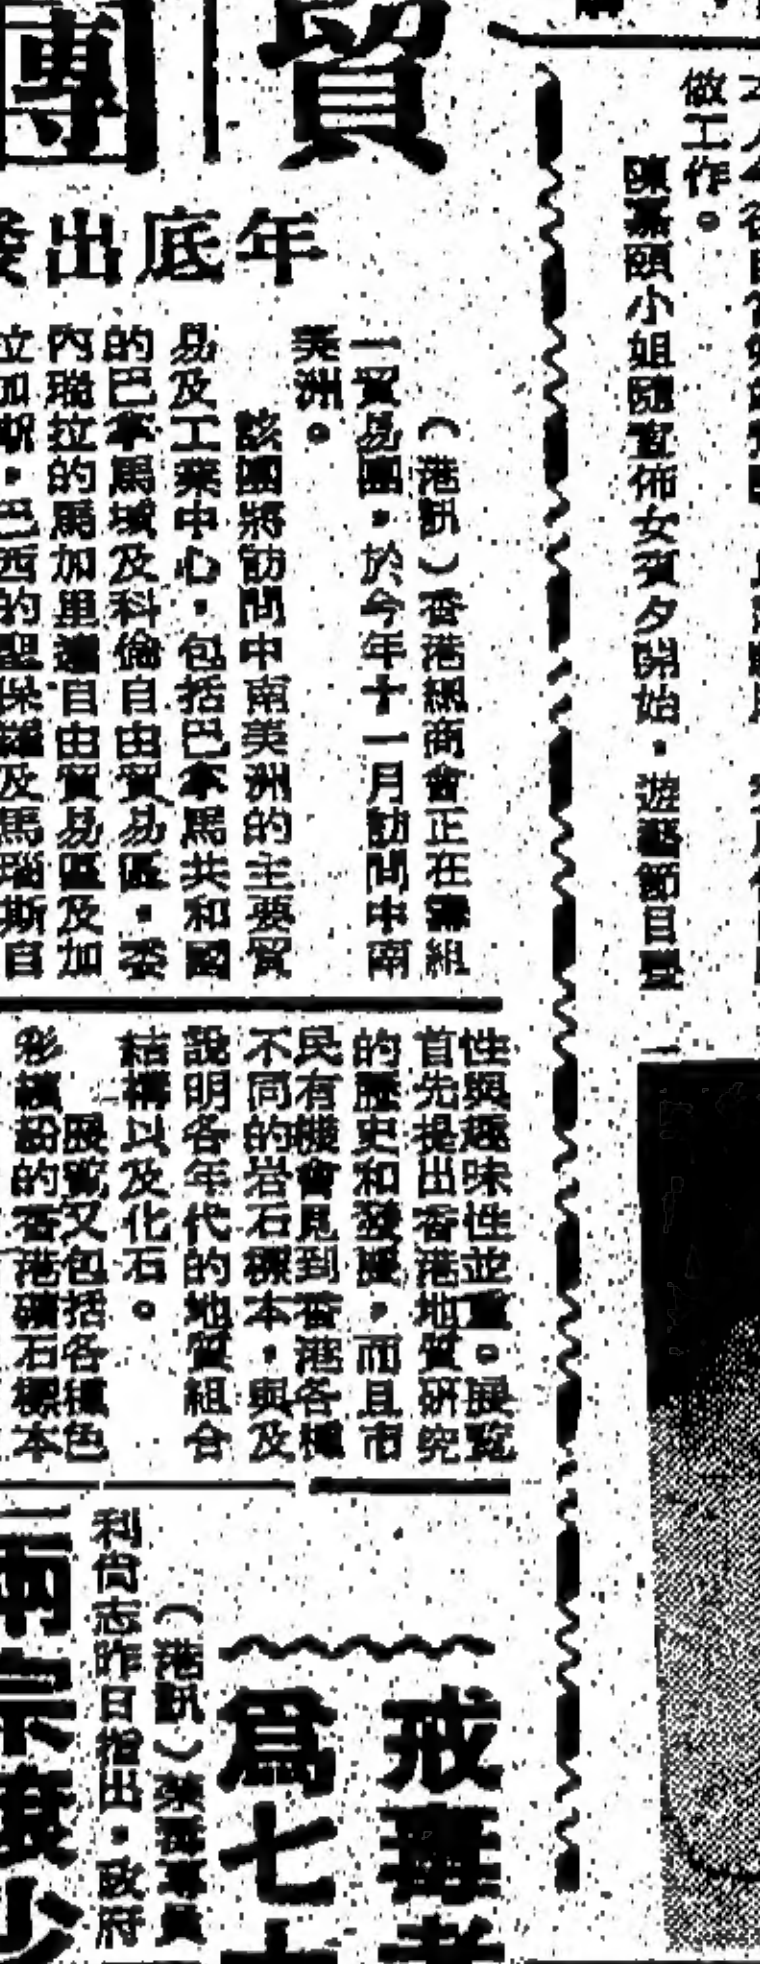 做工作。
陳嘉頤小姐隨宣佈女賓夕開始，遊藝節目豐
貿
團
年底出發
（港訊）香港總商會正在籌組
一貿易團，於今年十一月訪問中南
美洲。
該團將訪問中南美洲的主要貿
易及工業中心，包括巴拿馬共和國
的巴拿馬城及科倫自由貿易區，委
內瑞拉的馬加里達自由貿易區及加
拉加斯，巴西的聖保羅及馬瑙斯自
性與趣味性並重。展覽
首先提出香港地質研究
的歷史和發展，而且市
民有機會見到香港各種
不同的岩石標本，與及
說明各年代的地質組合
結構以及化石。
展覽又包括各種色
彩繽紛的香港礦石標本
戒毒者
為七
（港訊）禁毒專員
利尚志昨日指出，政府
兩宗